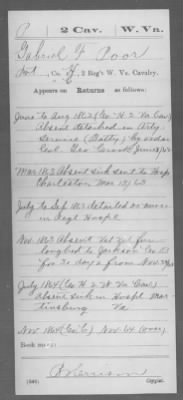 P 2 Cav. W. Va.
Gabriel F Poor
Pvt, Co. H, 2 Reg't W. Va. Cavalry.
Appears on Returns as follows:
June to Aug 1862 (Co H. 2 Va Cav)
Absent detached in Arty
Service (Batty) by order
Col. Geo Crook June 8/62
Mar 1863 Absent sick sent to Hosp
Charleston Mar 12/63
July to Sep 1863 detailed as nurse
in Regt Hospl
Nov 1863 Absent Vet fur
to Jackson Co
for 30 days from Nov
July 1864 (Co H. 2 W. Va Cav)
Absent sick in Hospt Mar-
tinsburg Va
Nov 1864 Nov 64
Book mark:
(546) Copyist.